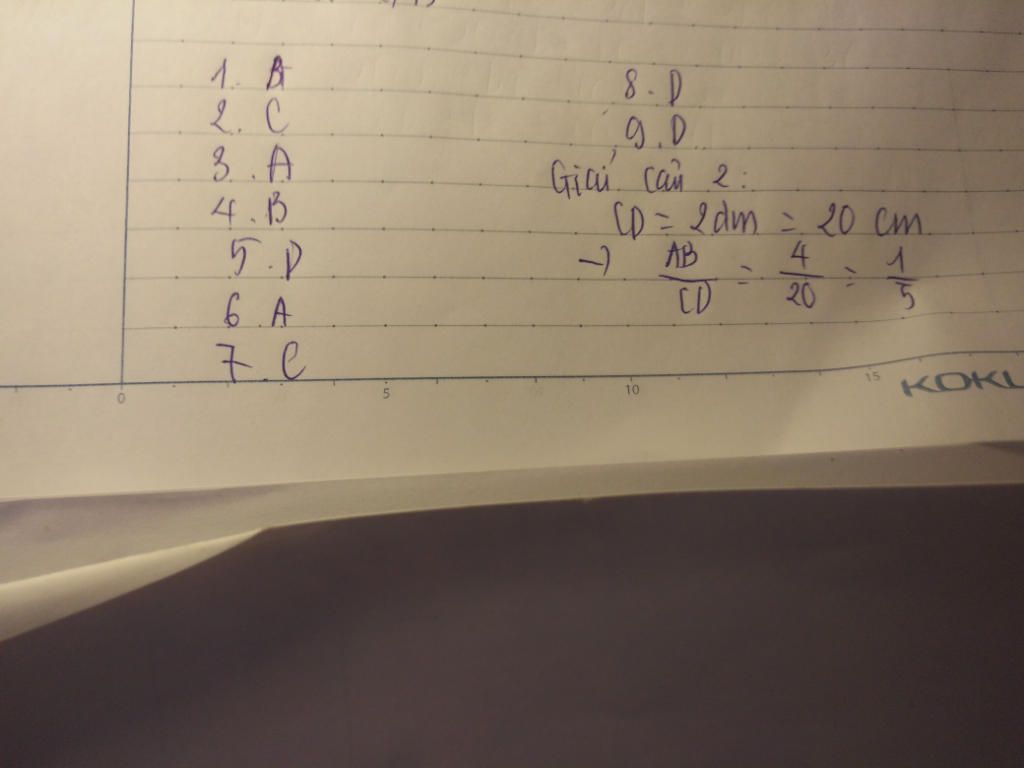 1. A
2. C
3. A
4. B
5. D
6 A
7. C
8. D
9. D
Giải câu 2:
CD = 2dm = 20 cm
→ AB/CD = 4/20 = 1/5
0 5 10 15